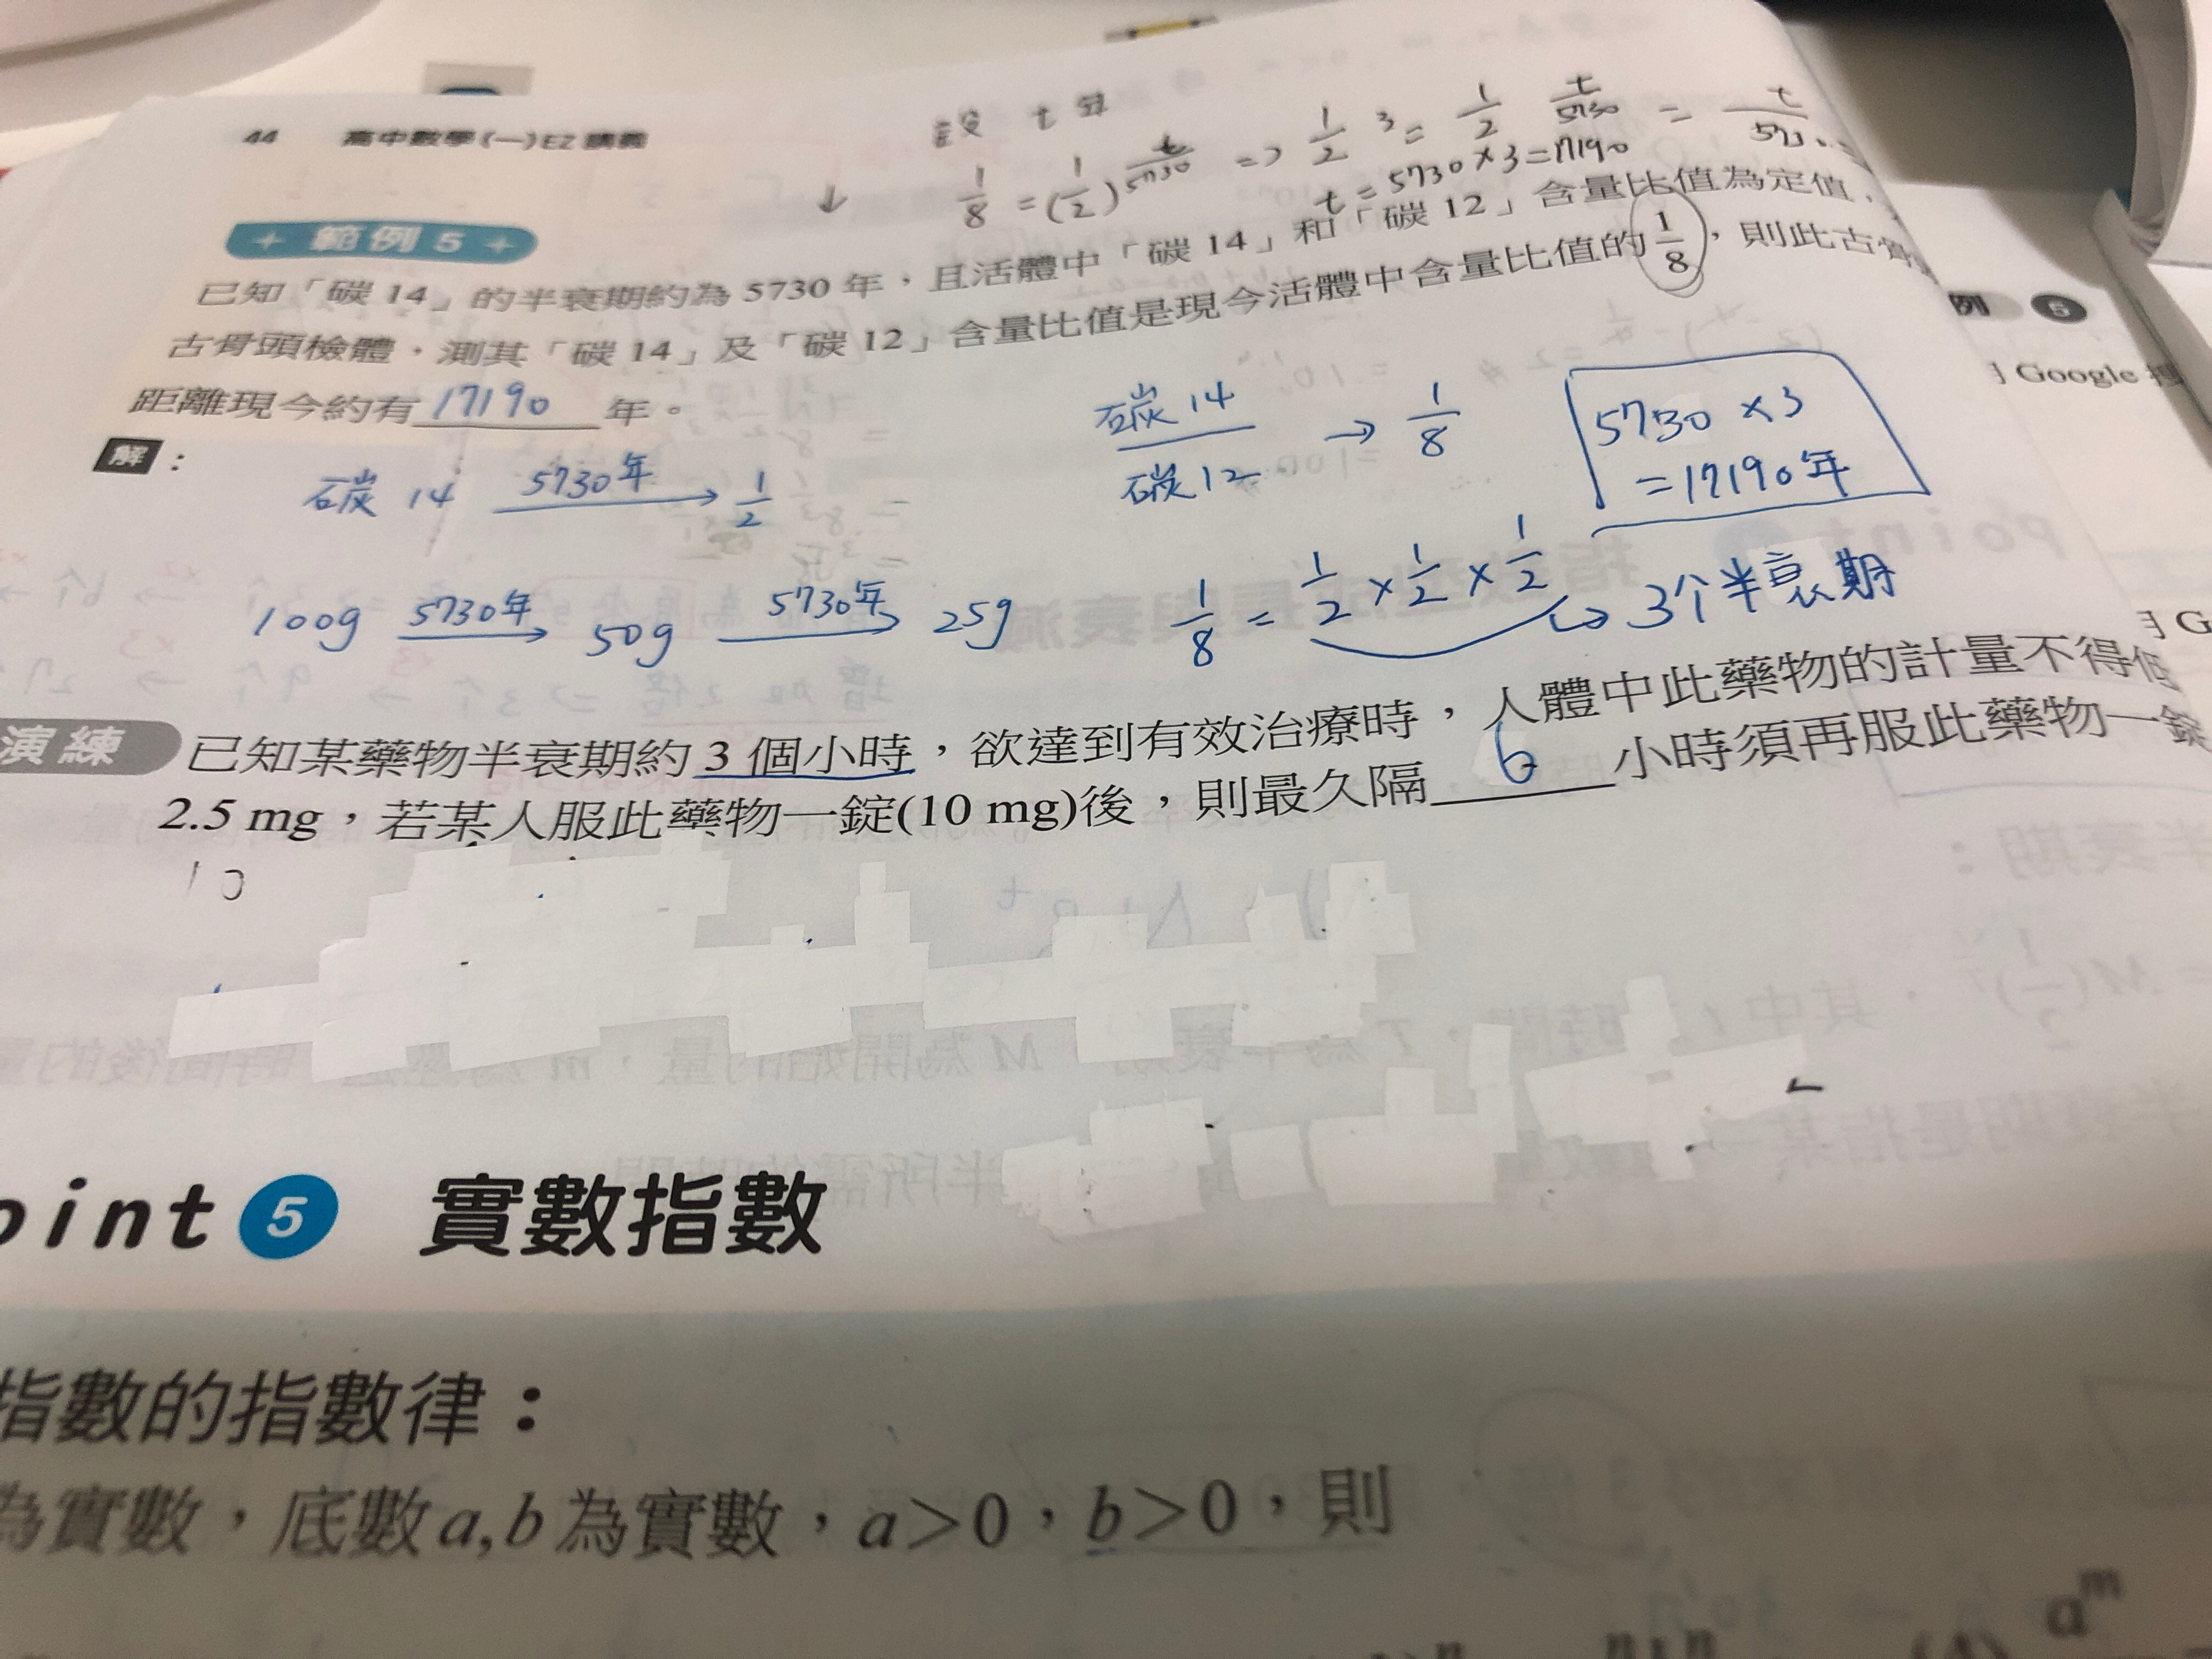 44 高中數學(一)EZ 講義
設 t 年
↓ 1/8 = (1/2)^(t/5730) => 1/2 ^3 = 1/2 ^(t/5730) =
t = 5730×3=17190
+ 範例 5 +
已知「碳 14」的半衰期約為 5730 年，且活體中「碳 14」和「碳 12」含量比值為定值，
古骨頭檢體，測其「碳 14」及「碳 12」含量比值是現今活體中含量比值的 1/8，則此古骨
距離現今約有 17190 年。
解：
碳 14 5730年→ 1/2
碳 14/碳 12 → 1/8
5730 ×3
=17190年
100g 5730年→ 50g 5730年→ 25g
1/8 = 1/2 × 1/2 × 1/2 → 3个半衰期
演練 已知某藥物半衰期約 3 個小時，欲達到有效治療時，人體中此藥物的計量不得低
2.5 mg，若某人服此藥物一錠(10 mg)後，則最久隔 6 小時須再服此藥物一錠
10
oint 5 實數指數
指數的指數律：
為實數，底數 a,b 為實數，a>0，b>0，則
a^m
例 5
Google